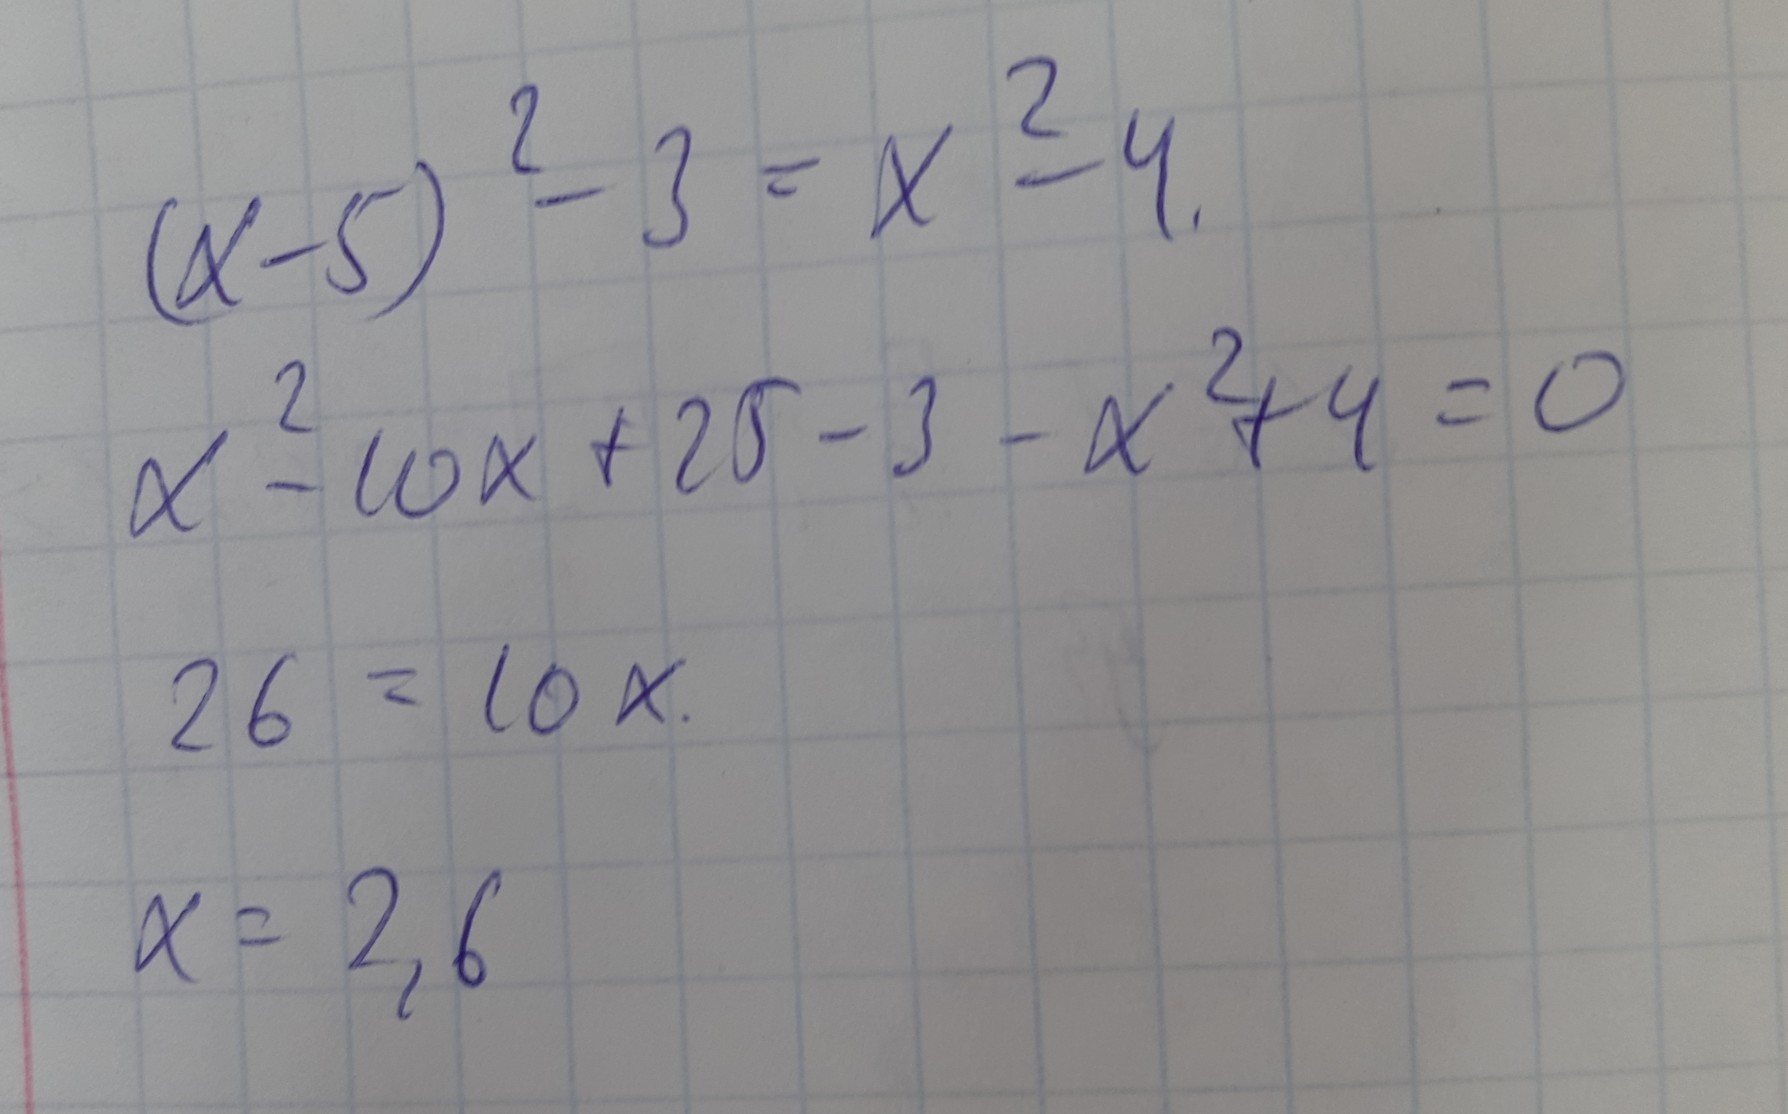 (x-5)² - 3 = x² - 4.
x² - 10x + 25 - 3 - x² + 4 = 0
26 = 10x.
x = 2,6